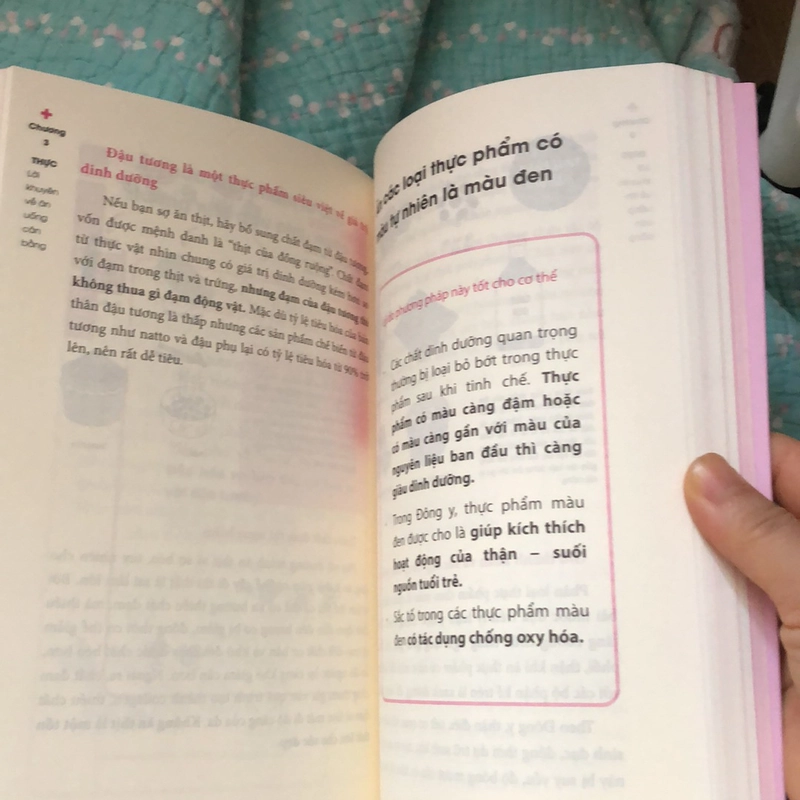 Chương
3
THỰC
Lời
khuyên
về ăn
uống
cân
bằng
Đậu tương là một thực phẩm siêu việt về giá trị
dinh dưỡng
Nếu bạn sợ ăn thịt, hãy bổ sung chất đạm từ đậu tương,
vốn được mệnh danh là "thịt của đồng ruộng". Chất đạm
từ thực vật nhìn chung có giá trị dinh dưỡng kém hơn so
với đạm trong thịt và trứng, nhưng đạm của đậu tương
không thua gì đạm động vật. Mặc dù tỷ lệ tiêu hóa của bản
thân đậu tương là thấp nhưng các sản phẩm chế biến từ đậu
tương như natto và đậu phụ lại có tỷ lệ tiêu hóa từ 90% trở
lên, nên rất dễ tiêu.
các loại thực phẩm có
tự nhiên là màu đen
phương pháp này tốt cho cơ thể
Các chất dinh dưỡng quan trọng
thường bị loại bỏ bớt trong thực
phẩm sau khi tinh chế. Thực
phẩm có màu càng đậm hoặc
có màu càng gần với màu của
nguyên liệu ban đầu thì càng
giàu dinh dưỡng.
Trong Đông y, thực phẩm màu
đen được cho là giúp kích thích
hoạt động của thận – suối
nguồn tuổi trẻ.
Sắc tố trong các thực phẩm màu
đen có tác dụng chống oxy hóa.